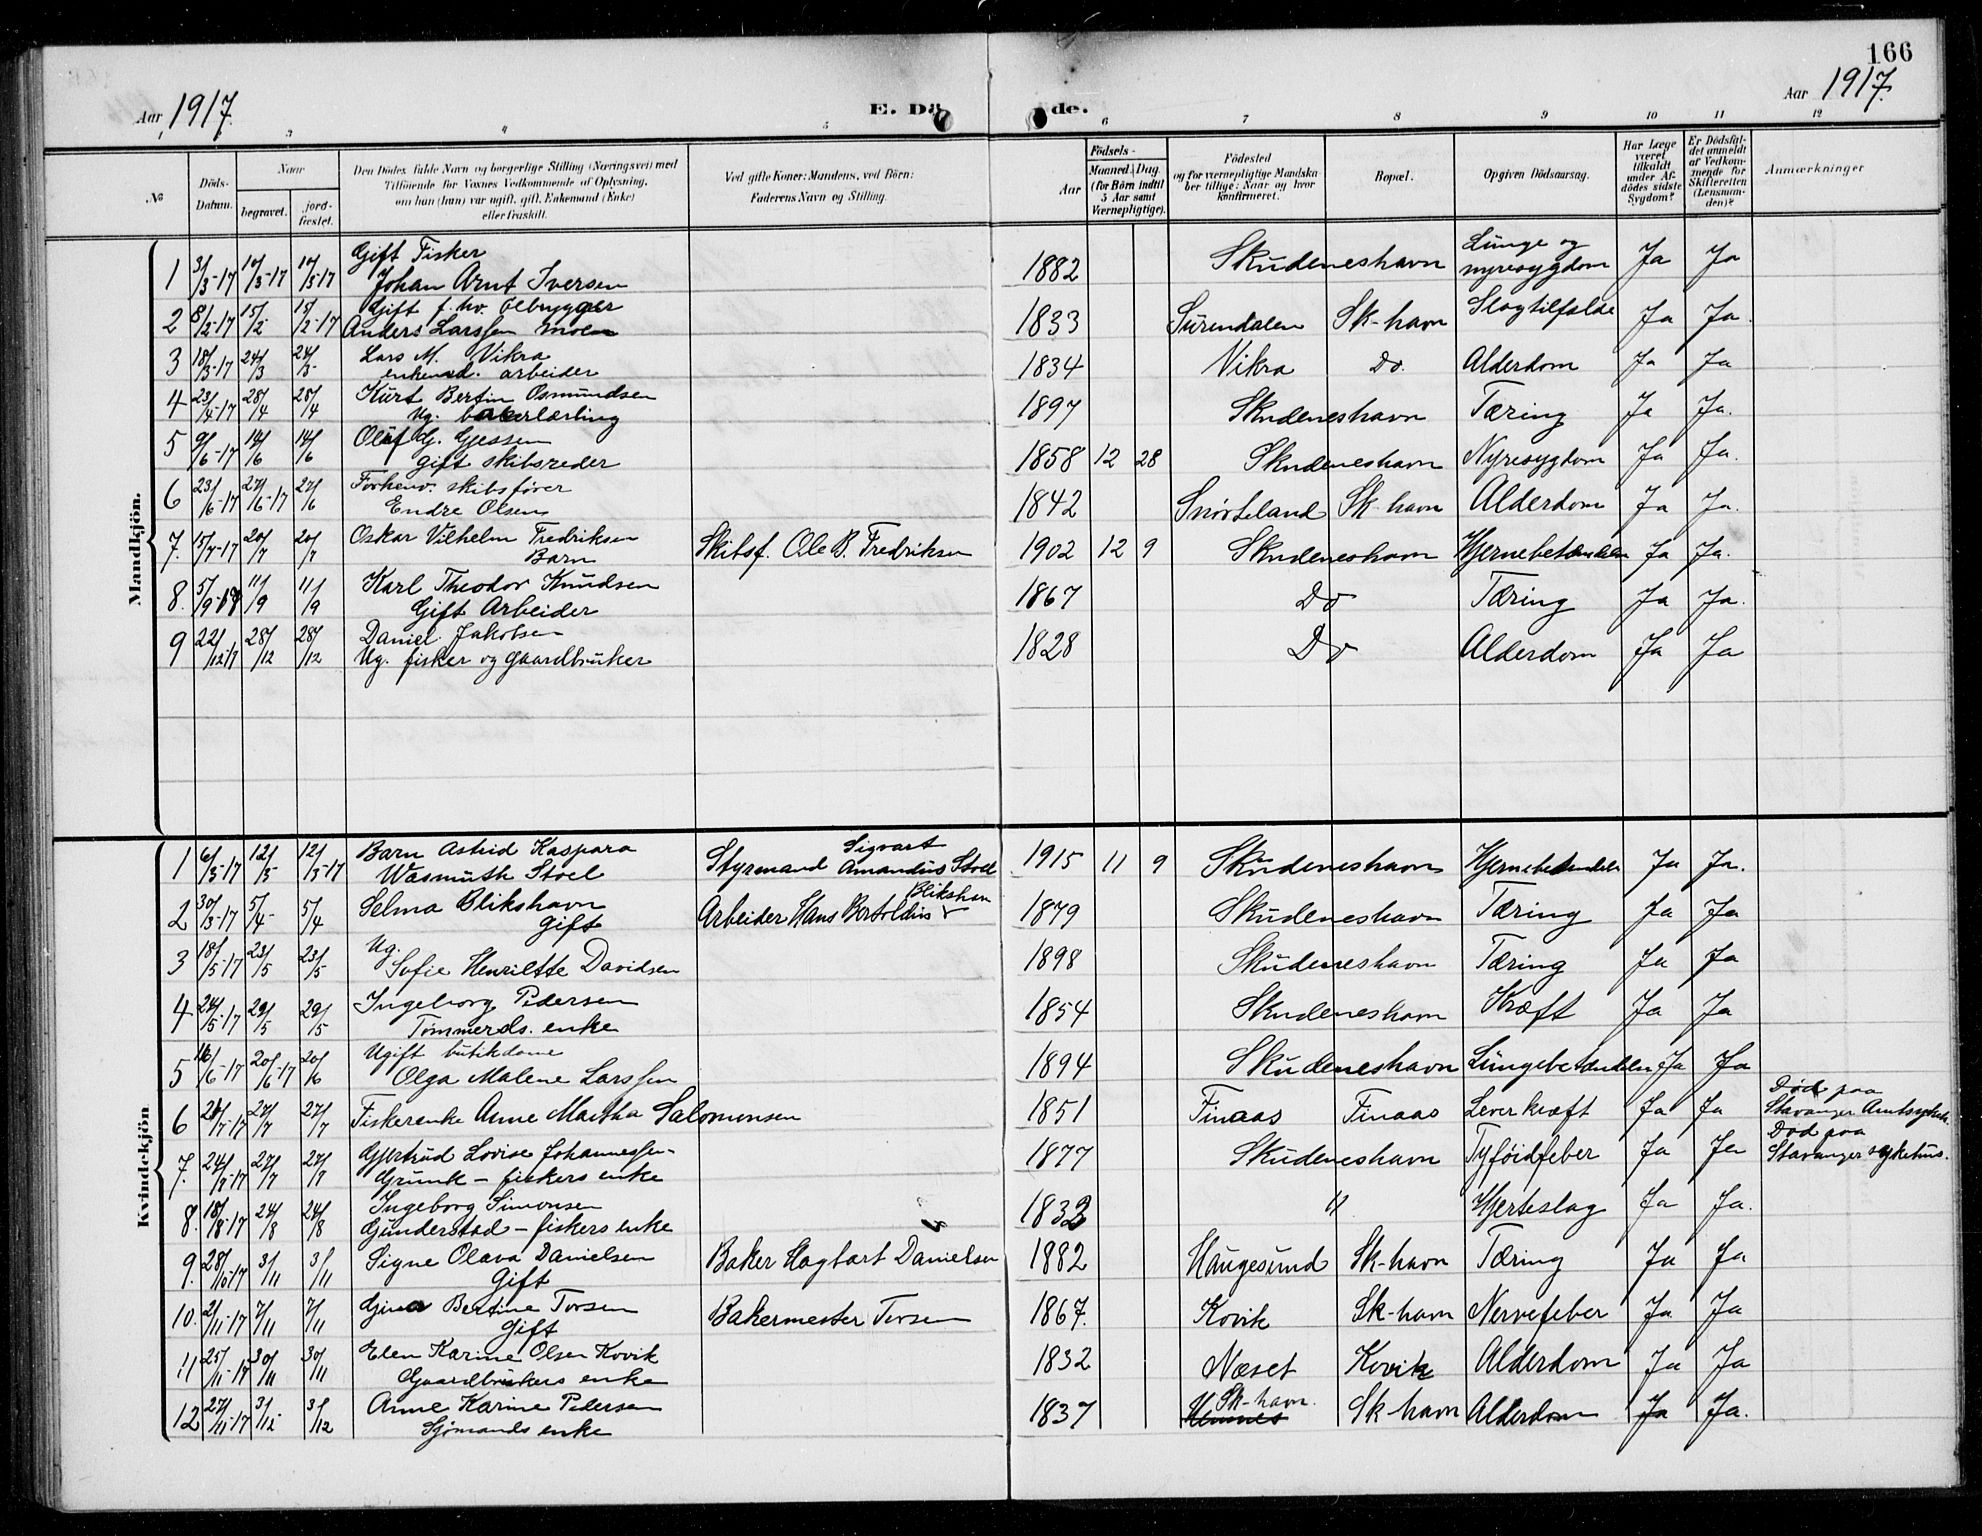 166
Aar 1917. E. Dö de. Aar 1917.
3 4 5 6 7 8 9 10 11 12
№ Döds-Datum. Naar begravet. jord-fæstet. Den Dödes fulde Navn og borgerlige Stilling (Næringsvei) med Tilföiende for Voxnes Vedkommende af Oplysning, om hun (han) var ugift, gift, Enkemand (Enke) eller fraskilt. Ved gifte Koner: Mandens, ved Börn: Faderens Navn og Stilling. Aar Födsels- Maaned. Dag. (for Börn indtil 5 Aar samt Værnepligtige). Födested og for værnepligtige Mandskaber tillige: Naar og hvor konfirmeret. Bopæl. Opgiven Dödsaarsag. Har Læge været tilkaldt under Afdödes sidste Sygdom? Er Dödsfaldet anmeldt af Vedkommende for Skifteretten (Lensmanden)? Anmærkninger
Mandkjön.
1 3/3-17 10/3-17 10/3-17 Gift Fisker Johan Arnt Iversen 1882 Skudeneshavn Lunge og nyresygdom Ja Ja
2 8/2-17 15/2 15/2-17 Gift f. hv. ølbrygger Anders Larssen Moen 1833 Surendalen Sk-havn Slagtilfælde Ja Ja.
3 18/3-17 24/3 24/3 Lars M. Vikra enkemd. arbeider 1834 Vikra Do. Alderdom Ja Ja
4 23/4-17 28/4 28/4 Kurt Bertin Osmundsen Ug. bakerlærling 1897 Skudeneshavn Tæring Ja Ja.
5 9/6-17 14/6 14/6 Oluf G. Gjessen gift skibsreder 1858 12 28 Skudeneshavn Nyresygdom Ja Ja.
6 23/6-17 27/6-17 27/6 Forhenv. skibsfører Endre Olsen 1842 Sk-havn Alderdom Ja Ja.
7. 15/7-17 20/7 20/7 Oskar Vilhelm Fredriksen Barn Skibsf. Ole B. Fredriksen 1902 12 9 Skudeneshavn Hjernebetændelse Ja Ja.
8. 5/9-17 11/9 11/9 Karl Theodor Knudsen Gift Arbeider 1867 Do Tæring Ja Ja.
9 22/12-17 28/12 28/12 Daniel Jakobsen Ug. fisker og gaardbruker 1828 Do Alderdom Ja Ja
Kvindekjön
1 6/3-17 12/3 12/3-17 Barn Astrid Kaspara Wasmuth Stoel Styrmand Sigvart Amandus Stoel 1915 11 9 Skudeneshavn Hjernebetændelse Ja Ja.
2 30/3-17 5/4 5/4 Selma Blikshavn Gift Arbeider Hans Bertoldius Blikshavn 1879 Skudeneshavn Tæring Ja Ja
3 18/5-17 23/5 23/5 Ug. Sofie Henriette Davidsen 1898 Skudeneshavn Tæring Ja Ja
4 24/5-17 29/5 29/5 Ingeborg Pedersen Tømmerds. enke 1854 Skudeneshavn Kræft Ja Ja
5 16/6-17 20/6-17 20/6 Ugift butikdame Olga Malene Larssen 1894 Skudeneshavn Lungebetændelse Ja Ja
6 21/7-17 27/7 27/7 Fiskerenke Anne Martha Salomonsen 1851 Finaas Finaas Leverkræft Ja Ja Død paa Stavanger Amtssykeh.
7. 24/7-17 27/7 27/7 Gjertrud Lovise Johannessen Grunk - fiskers enke 1877 Skudeneshavn Tyføidfeber Ja Ja Død paa Stavanger sykehus.
8. 18/8-17 24/8 24/8 Ingeborg Simonsen Gunderstad - fiskers enke 1832 " Hjerteslag Ja Ja.
9. 28/10-17 3/11 3/11 Signe Olava Danielsen Gift Baker Hagbart Danielsen 1882 Haugesund Sk-havn Tæring Ja Ja
10. 2/11-17 7/11 7/11 Gina Bertine Torsen Gift Bakermester Torsen 1867. Kovik Sk-havn Nervefeber Ja Ja
11 25/11-17 30/11 30/11 Elen Karine Olsen Kovik Gaardbrukers enke 1832 Næset Kovik Alderdom Ja Ja
12 27/11-17 3/12 3/12 Anne Karine Pedersen Sjømands enke 1837 Sk-havn. Sk-havn Alderdom Ja Ja.